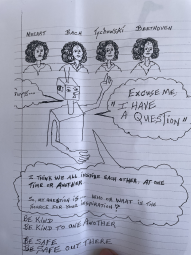 MOZART BACH TYCHOWSKI BEETHOVEN
EXCUSE ME,
"I HAVE
A QUESTION"
I THINK WE ALL INSPIRE EACH OTHER, AT ONE
TIME OR ANOTHER.
SO, MY QUESTION IS --- WHO OR WHAT IS THE
SOURCE FOR YOUR INSPIRATION?
BE KIND
BE KIND TO ONE ANOTHER
BE SAFE
BE SAFE OUT THERE